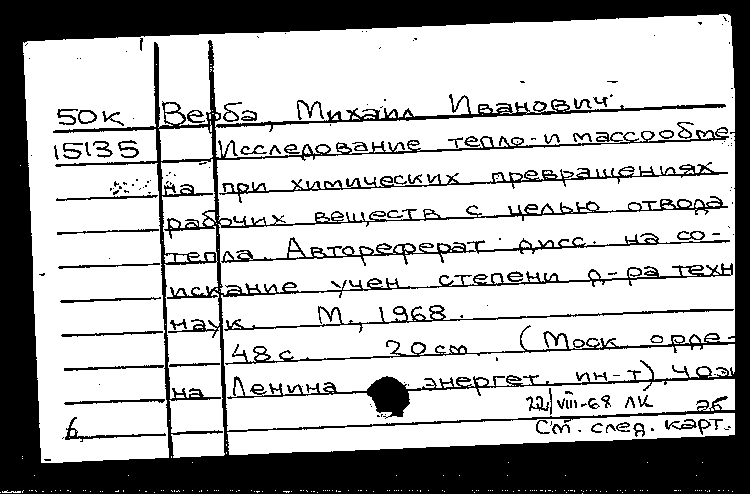 50к Верба, Михаил Иванович.
15135 Исследование тепло- и массообме-
на при химических превращениях
рабочих веществ с целью отвода
тепла. Автореферат дисс. на со-
искание учен. степени д-ра техн
наук. М., 1968.
48 с. 20 см. (Моск орде-
на Ленина энергет. ин-т). 40 эк
22/VIII-68 ЛК аб
б См. след. карт.